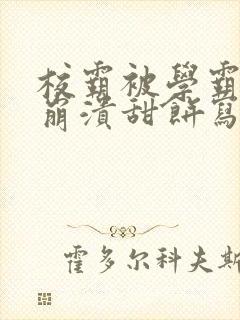 校霸被學霸
崩潰甜餅寫
霍多尔科夫斯